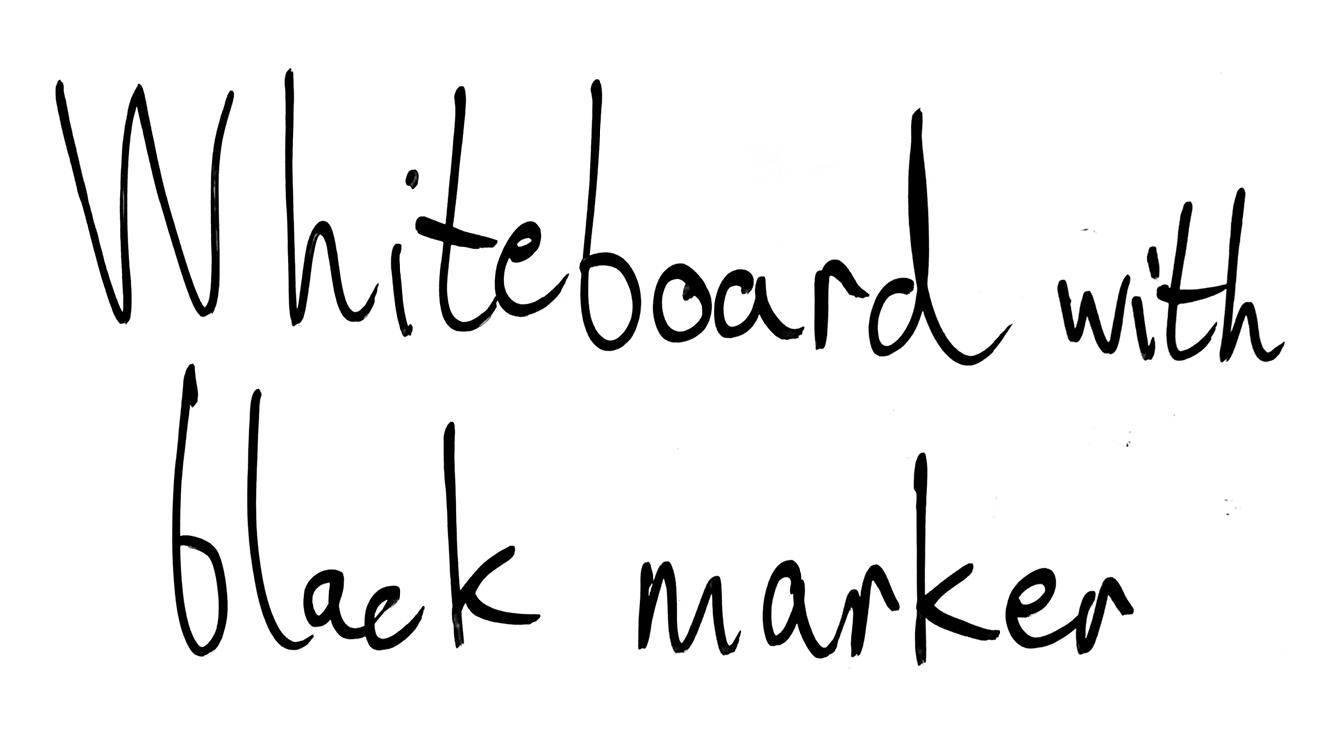 Whiteboard with
black marker